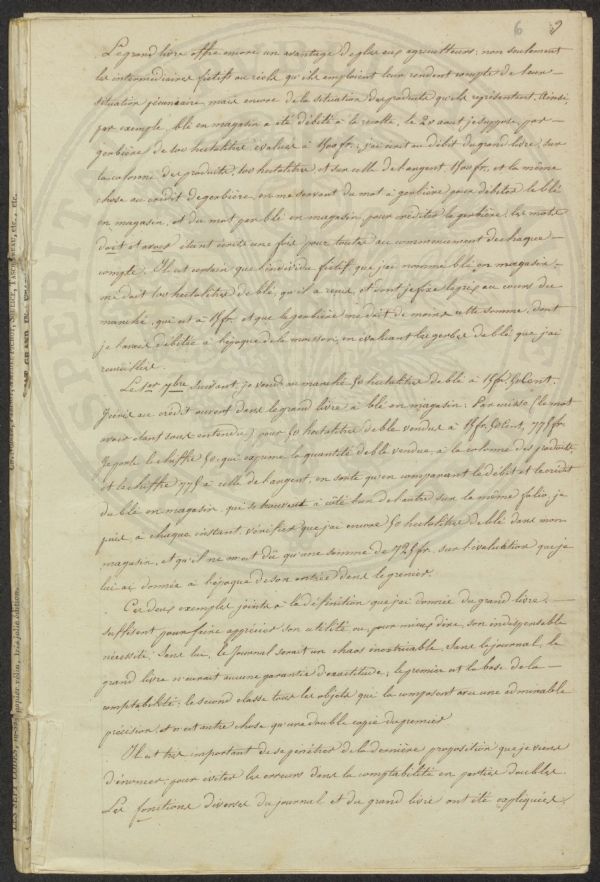 6 9
Le grand livre offre encore un avantage de plus aux agriculteurs: non seulement
les intermédiaires fictifs au réels qu'ils emploient leur rendent compte de leur
situation pécuniaire, mais encore de la situation des produits qu'ils représentent. Ainsi,
par exemple, blé en magasin a été débité à la récolte, le 20 aout je suppose, par
gerbière, de 100 hectolitres évalués à 1500 fr.; j'écris au débit du grand livre, sur
la colonne des produits, 100 hectolitres et sur celle de l'argent 1500 fr. et la même
chose au crédit de gerbière, en me servant du mot à gerbière pour débiter le blé
en magasin, et du mot par blé en magasin, pour créditer la gerbière, les mots
doit et avoir étant écrits une fois pour toutes au commencement de chaque
compte. Il est certain que l'individu fictif que j'ai nommé blé en magasin
me doit 100 hectolitres de blé, qu'il a reçus, et dont je fixe le prix au cours du
marché, qui est à 15 fr. et que la gerbière me doit de moins cette somme, dont
je l'avais débitée à l'époque de la moisson, en évaluant les gerbes de blé que j'ai
recueillies.
Le 1er 7bre suivant, je vends au marché 50 hectolitres de blé à 15 fr. 50 cent.
J'écris au crédit ouvert dans le grand livre à blé en magasin: Par caisse (le mot
avoir étant sous entendu) pour 50 hectolitres de blé vendus à 15 fr. 50 cent, 775 fr.
Je porte le chiffre 50, qui exprime la quantité de blé vendue, à la colonne des produits,
et le chiffre 775 à celle de l'argent, en sorte qu'en comparant le débit et le crédit
du blé en magasin, qui se trouvent à côté l'un de l'autre sur le même folio, je
puis à chaque instant vérifier que j'ai encore 50 hectolitres de blé dans mon
magasin, et qu'il ne m'est dû qu'une somme de 725 fr. sur l'évaluation que je
lui ai donnée à l'époque de son entrée dans le grenier.
Ces deux exemples joints à la définition que j'ai donnée du grand livre
suffisent pour faire apprécier son utilité ou, pour mieux dire, son indispensable
nécessité. Sans lui, le journal serait un chaos inextricable, sans le journal, le
grand livre n'aurait aucune garantie d'exactitude; le premier est la base de la
comptabilité; le second classe tous les objets qui la composent avec une admirable
précision, et n'est autre chose qu'une double copie du premier.
Il est très important de se pénétrer de la dernière proposition que je viens
d'énoncer, pour éviter les erreurs dans la comptabilité en parties doubles.
Les fonctions diverses du journal et du grand livre ont été expliquées.